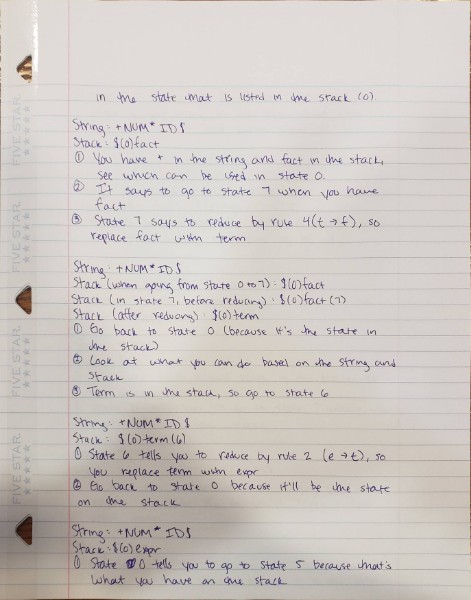 in the state that is listed in the stack (0).
String: +NUM*ID$
Stack: $(0)fact
① You have + in the string and fact in the stack,
see which can be used in state 0.
② It says to go to state 7 when you have
fact
③ State 7 says to reduce by rule 4(t→f), so
replace fact with term
String: +NUM*ID$
Stack (when going from state 0 to 7): $(0)fact
Stack (in state 7, before reducing): $(0)fact(7)
Stack (after reducing): $(0)term
① Go back to state 0 (because it's the state in
the stack)
② Look at what you can do based on the string and
stack
③ Term is in the stack, so go to state 6
String: +NUM*ID$
Stack: $(0)term(6)
① State 6 tells you to reduce by rule 2 (e→t), so
you replace term with expr
② Go back to state 0 because it'll be the state
on the stack
String: +NUM*ID$
Stack: $(0)expr
① State 0 tells you to go to state 5 because that's
what you have on the stack
FIVE STAR
FIVE STAR
FIVE STAR
FIVE STAR